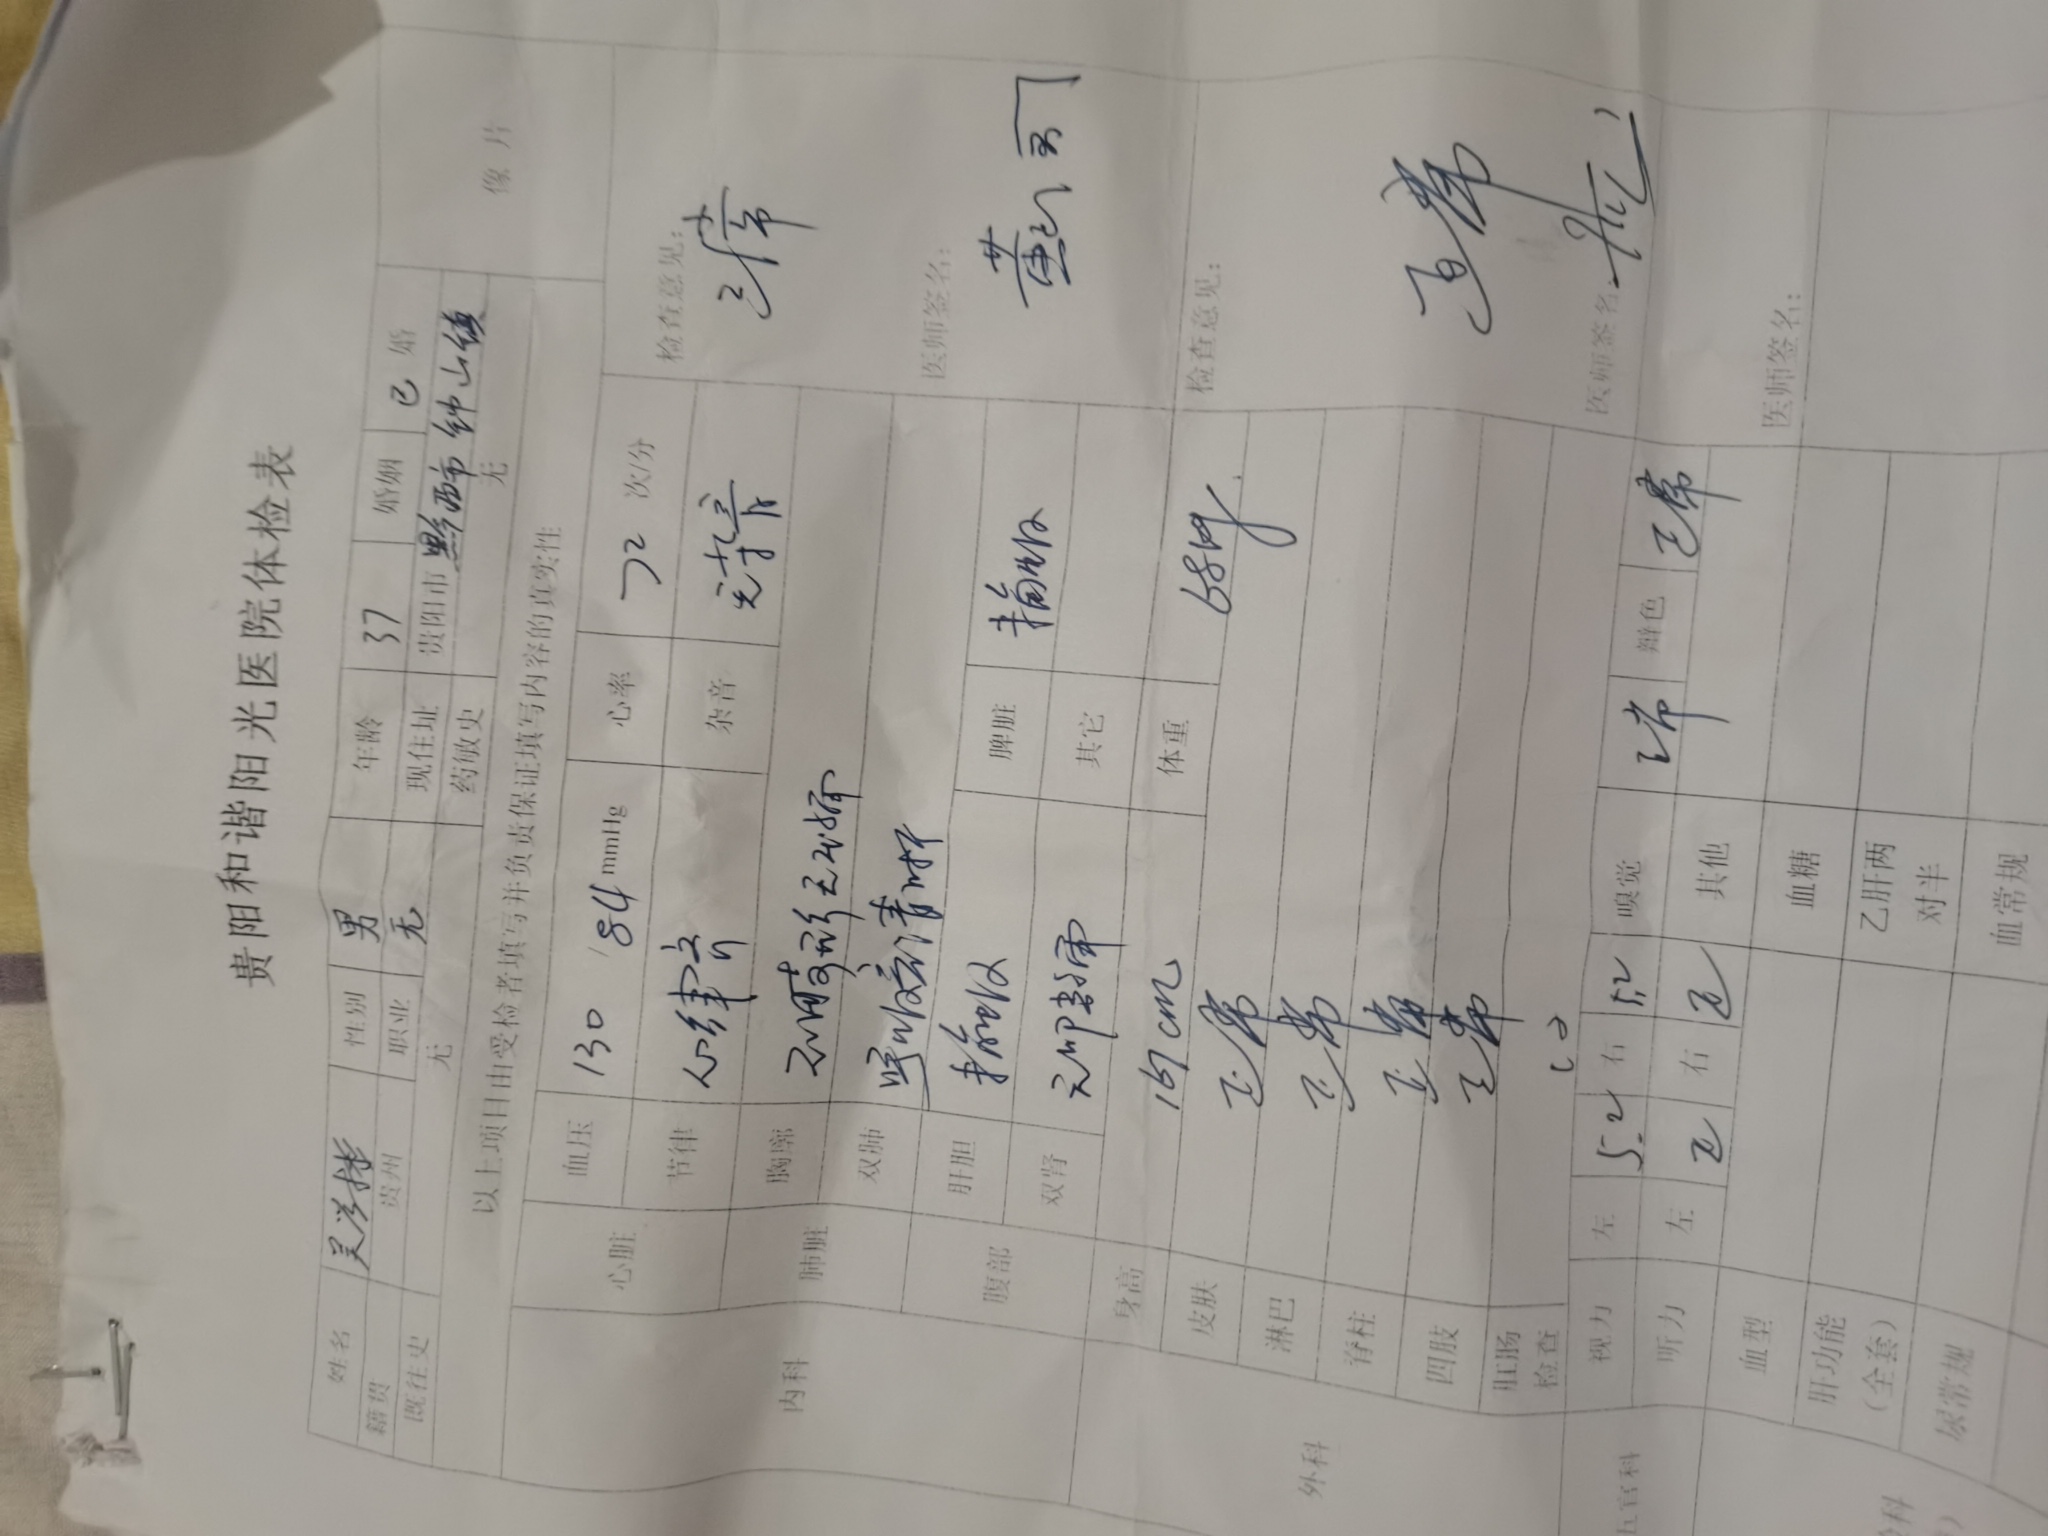 贵阳和谐阳光医院体检表
姓名 性别 男 年龄 37 婚姻 已 婚 像 片
籍贯 贵州 职业 无 现住址 贵阳市 黔西市 钟山镇
既往史 无 药敏史 无
以上项目由受检者填写并负责保证填写内容的真实性
内科 心脏 血压 130 / 84 mmHg 心率 72 次/分 检查意见:
节律 心律齐 杂音 无杂音 正常
肺脏 胸廓
双肺 医师签名:
腹部 肝胆 脾脏
双肾 其它
外科 身高 167 cm 体重 68kg 检查意见:
皮肤 正常
淋巴 正常
脊柱 正常 正常
四肢 正常
肛肠检查 医师签名:
五官科 视力 左 5.2 右 5.2 嗅觉 正常 辩色 正常
听力 左 正 右 正 其他 医师签名:
血型 血糖
肝功能(全套) 乙肝两对半
尿常规 血常规